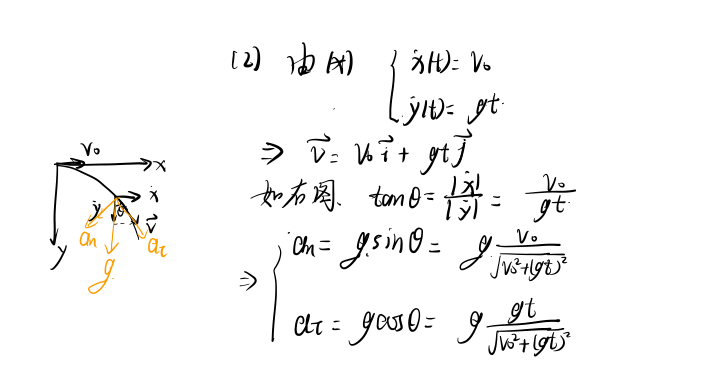 (2) 由(x) { ẋ(t) = v₀
ẏ(t) = gt
⇒ v⃗ = v₀i⃗ + gtj⃗
如右图、 tanθ = |ẋ|/|ẏ| = v₀/gt
⇒ { aₙ = g sinθ = g v₀/√(v₀²+(gt)²)
aτ = g cosθ = g gt/√(v₀²+(gt)²)
v₀
x
ẋ
ẏ θ
v⃗
aₙ aτ
y
g